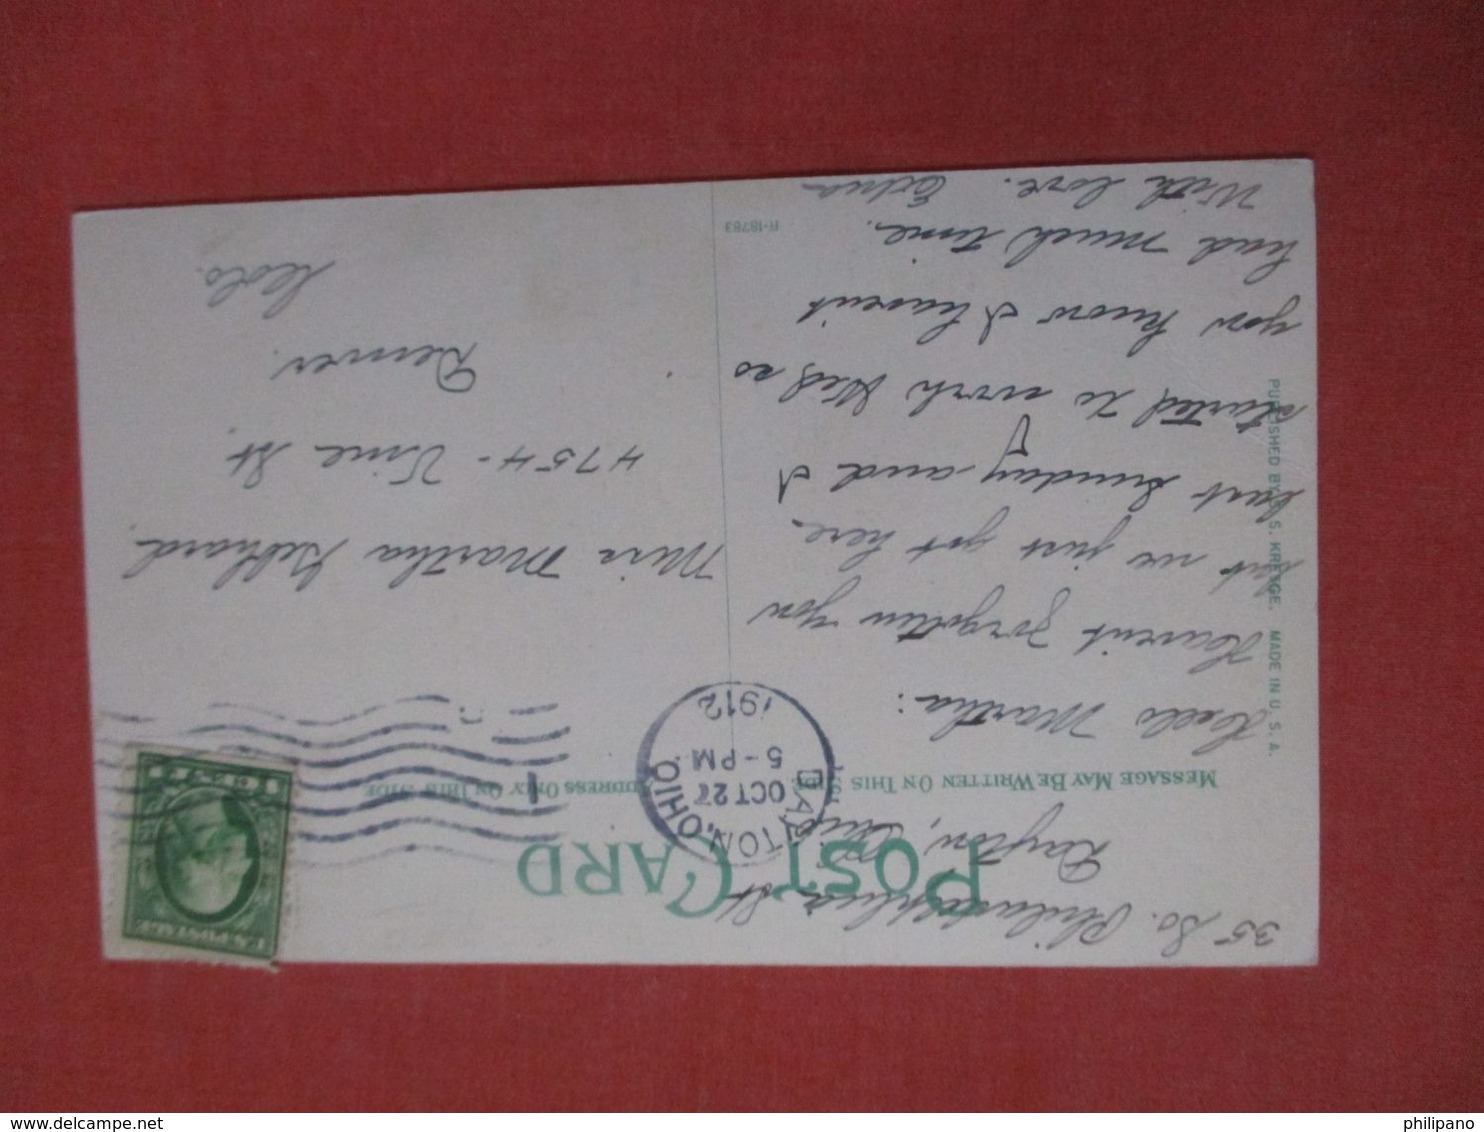 35 So. Philadelphia St
Dayton, Ohio
POST CARD
MESSAGE MAY BE WRITTEN ON THIS SIDE
ADDRESS ONLY ON THIS SIDE
DAYTON, OHIO
OCT 27
5-PM
1912
U.S. POSTAGE
Hello Martha:
Havent forgotten you
but we just got here
last Sunday and I
started to work Wed so
you know I havent
had much time.
With love. Edna
Miss Martha Gebhard
4754 - Vine St.
Denver.
Colo.
R-18783
PUBLISHED BY S. S. KRESGE. MADE IN U. S. A.
http://www.delcampe.net
philipano